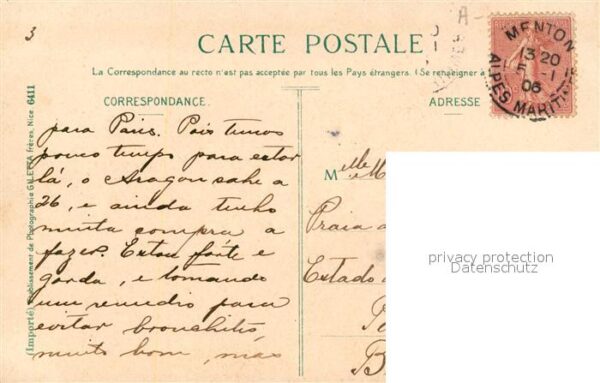 3
A-
CARTE POSTALE
La Correspondance au recto n'est pas acceptée par tous les Pays étrangers. (Se renseigner à
CORRESPONDANCE.
ADRESSE
MENTON
13 20
5 -1
06
ALPES MARITIMES
para Paris. Pois temos
pouco tempo para estar
lá, o Aragon sahe a
26, e ainda tenho
muita compra a
fazer. Estou forte e
gorda, e tomando
um remedio para
evitar bronchitis
muito bom, mas
Mlle M
Praia
Estado
B
privacy protection
Datenschutz
(Importé) Etablissement de Photographie GILETTA frères, Nice 6411